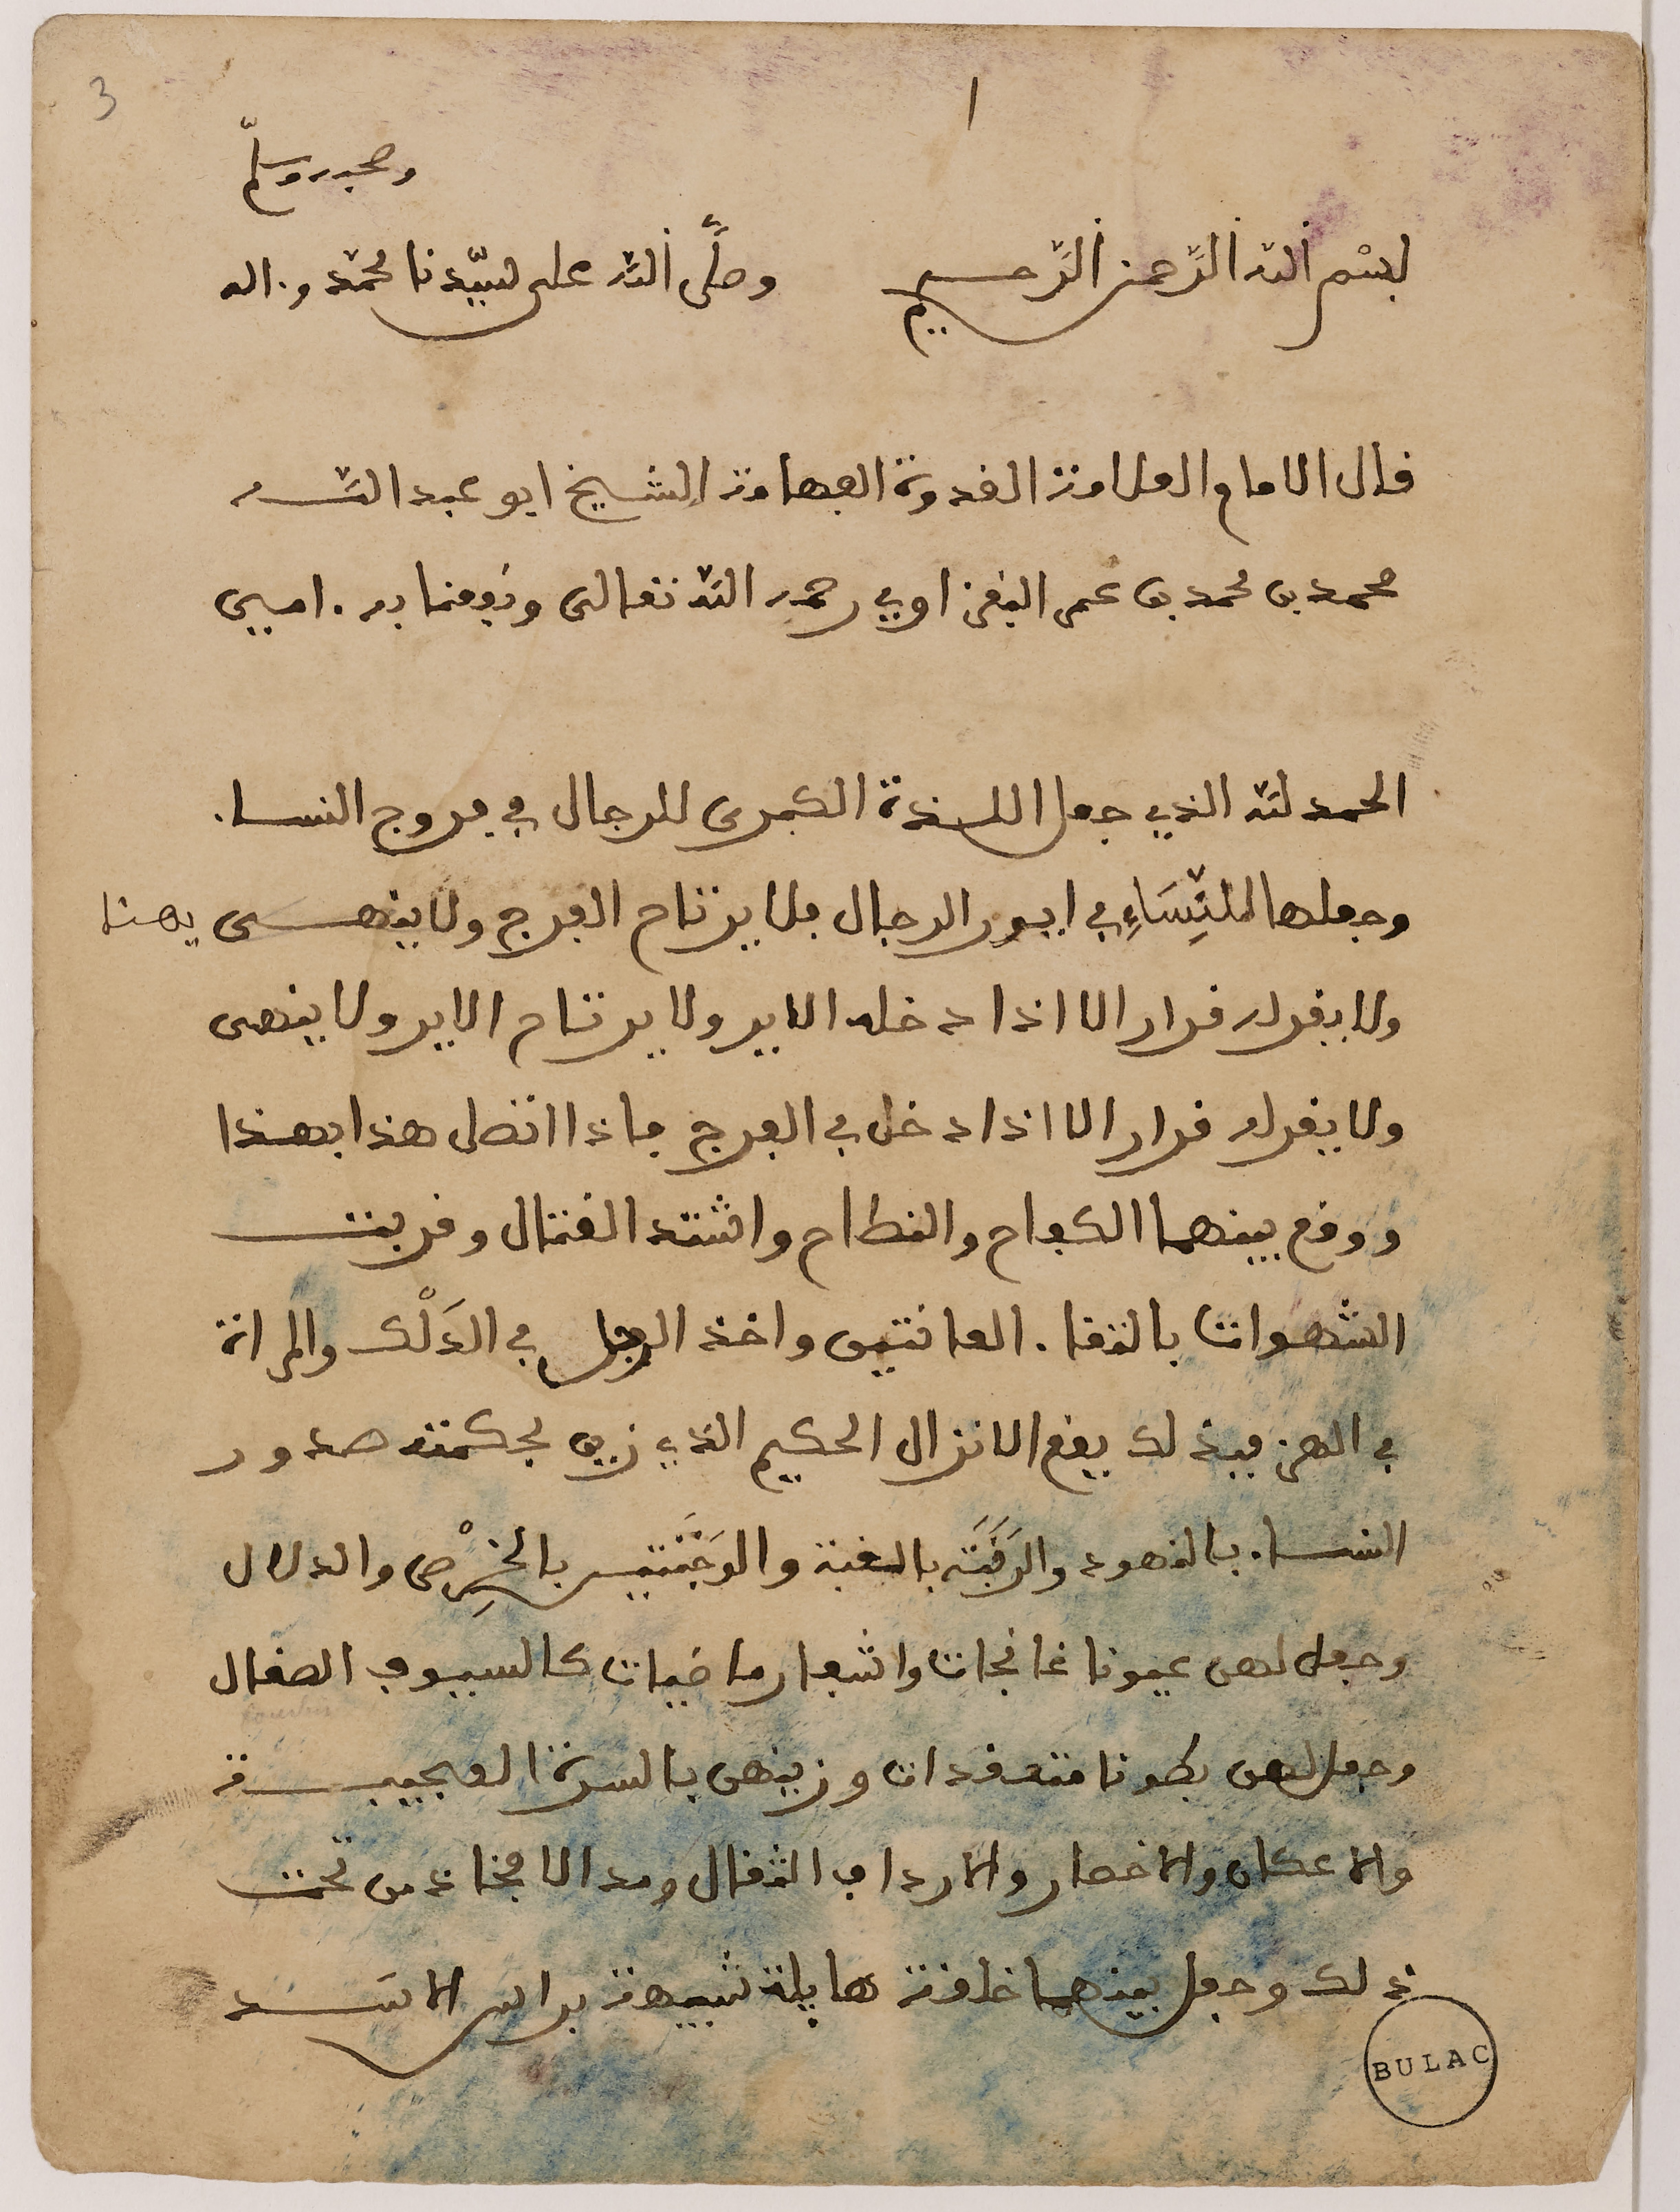 3
١
وصحبه وسلّم
بسْم ٱللّه ٱلرّحمن ٱلرّحيم وصلَّى ٱللّه على سيّدنا محمّد وءاله
قال الامام والعلامة القدوة الفهامة الشيخ ابو عبد اللّه
محمد بن محمد بن عمر النفزاوي رحمه اللّه تعالى ونفعنا به ءامين
الحمد للّه الذي جعل اللذة الكبرى للرجال في فروج النساء
وجعلها للنِّسَاءِ في ايور الرجال فلا يرتاح الفرج ولا ينهى يهنا
ولا يقر له قرار الا اذا دخله الاير ولا يرتاح الاير ولا ينهى
ولا يقر له قرار الا اذا دخل في الفرج فاذا اتصل هذا بهذا
ووقع بينهما الكفاح والنطاح واشتد القتال وقربت
الشهوات بالتقاء العانتين واخذ الرجل في الدَلْك والمراة
في الهز فبذلك يقع الانزال الحكيم الذي زين بحكمته صدور
النساء بالنهود والرَقَبَة بالغبة والوَجْنَتين بالخِرْص والدلال
وجعل لهن عيونا غانجات واشفار ماضيات كالسيوف الصقال
وجعل لهن بطونا متعقدات وزينهن بالسرة العجيبة
والاعكان والاخصار والارداف الثقال ومد الافخاذ من تحت
ذلك وجعل بينهما خلقة هايلة شبيهة براس الاسد
BULAC